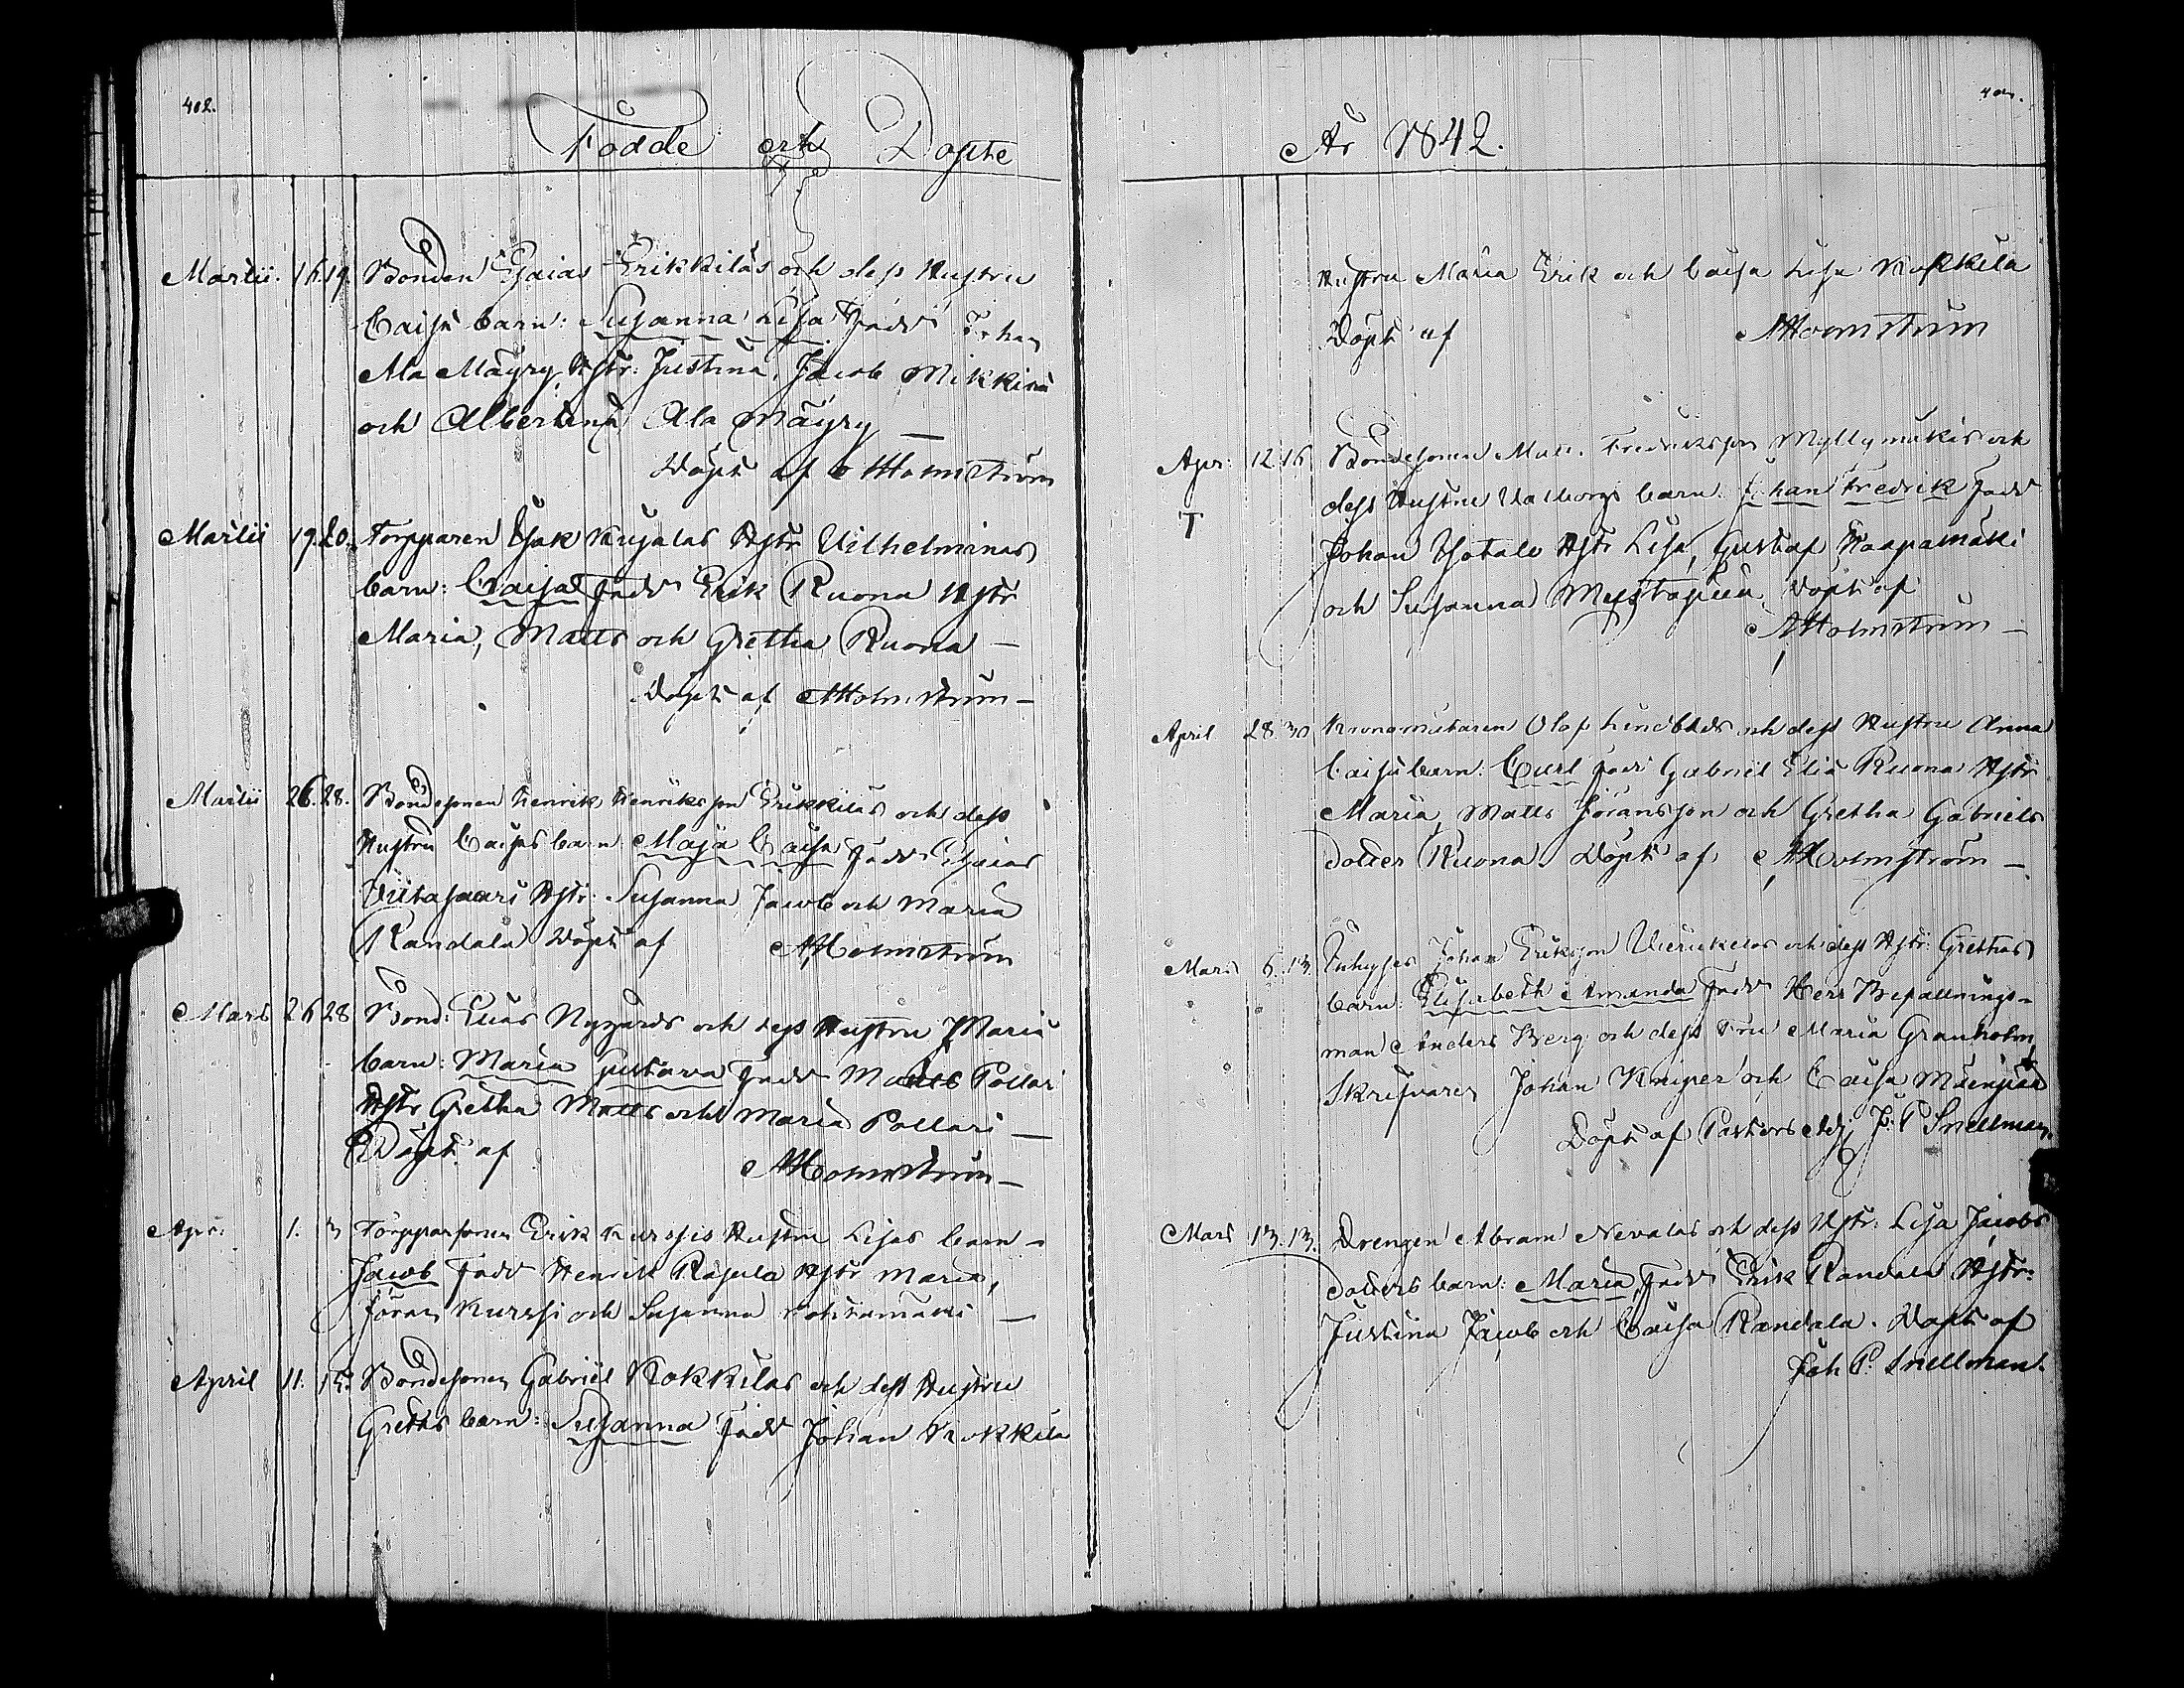 402.
Födde och Döpte
Martii. 16. 19. Bonden Esaias Erikkiläs och dess Hustru
Caisa barn: Susanna Lisa Fadd. Johan
Ala Mäyry, Hstr: Justina, Jacob Mikkinä
och Albertina Ala Mäyry —
Döpt af A Holmström
Martii 19. 20. Torpparen Isak Kujalas Hstr Vilhelminas
barn: Caisa Fadd Erik Ruona Hstr
Maria, Matts och Gretha Ruona —
Döpt af A Holmström —
Martii 26. 28. Bondesonen Henrik Henriksson Erikkiläs och dess
Hustru Caisas barn Maja Caisa Fadd Esaias
Viitasaari Hstr: Susanna, Jacob och Maria
Randala Döpt af A Holmström
Mars 26 28 Bond: Elias Nygårds och dess Hustru Maria
barn: Maria Gustava Fadd Matts Pollari
Hstr Gretha Matts och Maria Pollari —
Döpt af A Holmström —
Apr: 1. 3 Torpparsonen Erik Kurssis Hustru Lisas barn –
Jacob Fadd Henrik Rajula Hstr Maria,
Jöran Kurssi och Susanna —
April 11. 15. Bondesonen Gabriel Kokkilas och dess Hustru
Grethas barn: Susanna Fadd Johan Kokkila
År 1842.
Hustru Maria Erik och Caisa Lisa Kokkila
Döpt af A Holmström
Apr: 12. 16 Bondesonen Matts Fredriksson Myllymäkis och
T dess Hustru Valborgs barn: Johan Fredrik Fadd
Johan Ylötalo Hstr Lisa, Gustaf Haapamäki
och Susanna Mustapää, Döpt af
A Holmström —
April 28. 30 Kronomutaren Olof Lindblads och dess Hustru Anna
Caisa barn: Carl Fadd Gabriel Elia Ruona Hstr
Maria, Matts Jöransson och Gretha Gabriels
dotter Ruona. Döpt af A Holmström —
Mars 6. 13. Inhyses Johan Eriksson och dess Hstr: Grethas
barn: Elisabeth Amanda Fadd Herr Befallnings-
man Anders Berg och dess Fru Maria Granholm,
Skrifvaren Johan Kniper och Caisa Mäenpää
Döpt af Pastors Adj. J. P. Snellman.
Mars 13. 13. Drengen Abram Nevalas och dess Hstr: Lisa Jacobs
dotters barn: Maria, Fadd Erik Randala Hstr:
Justina Jacob och Caisa Randala. Döpt af
Joh P. Snellman.